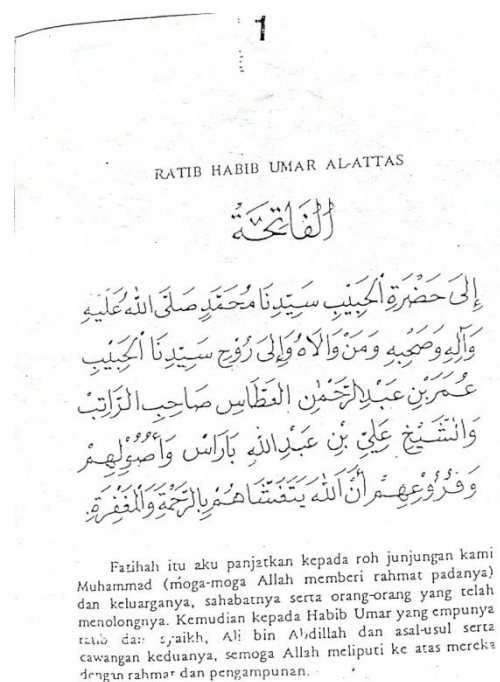 1
RATIB HABIB UMAR AL-ATTAS
اَلْفَاتِحَةُ
إِلَى حَضْرَةِ الْحَبِيْبِ سَيِّدِنَا مُحَمَّدٍ صَلَّى اللهُ عَلَيْهِ
وَآلِهِ وَصَحْبِهِ وَمَنْ وَالَاهُ وَإِلَى رُوْحِ سَيِّدِنَا الْحَبِيْبِ
عُمَرَ بْنِ عَبْدِ الرَّحْمٰنِ الْعَطَّاسِ صَاحِبِ الرَّاتِبْ
وَالشَّيْخِ عَلِيِّ بْنِ عَبْدِ اللهِ بَارَاسْ وَأُصُوْلِهِمْ
وَفُرُوْعِهِمْ أَنَّ اللهَ يَتَغَشَّاهُمْ بِالرَّحْمَةِ وَالْمَغْفِرَةِ.
Fatihah itu aku panjatkan kepada roh junjungan kami
Muhammad (moga-moga Allah memberi rahmat padanya)
dan keluarganya, sahabatnya serta orang-orang yang telah
menolongnya. Kemudian kepada Habib Umar yang empunya
ratib dan syaikh, Ali bin Abdillah dan asal-usul serta
cawangan keduanya, semoga Allah meliputi ke atas mereka
dengan rahmat dan pengampunan.